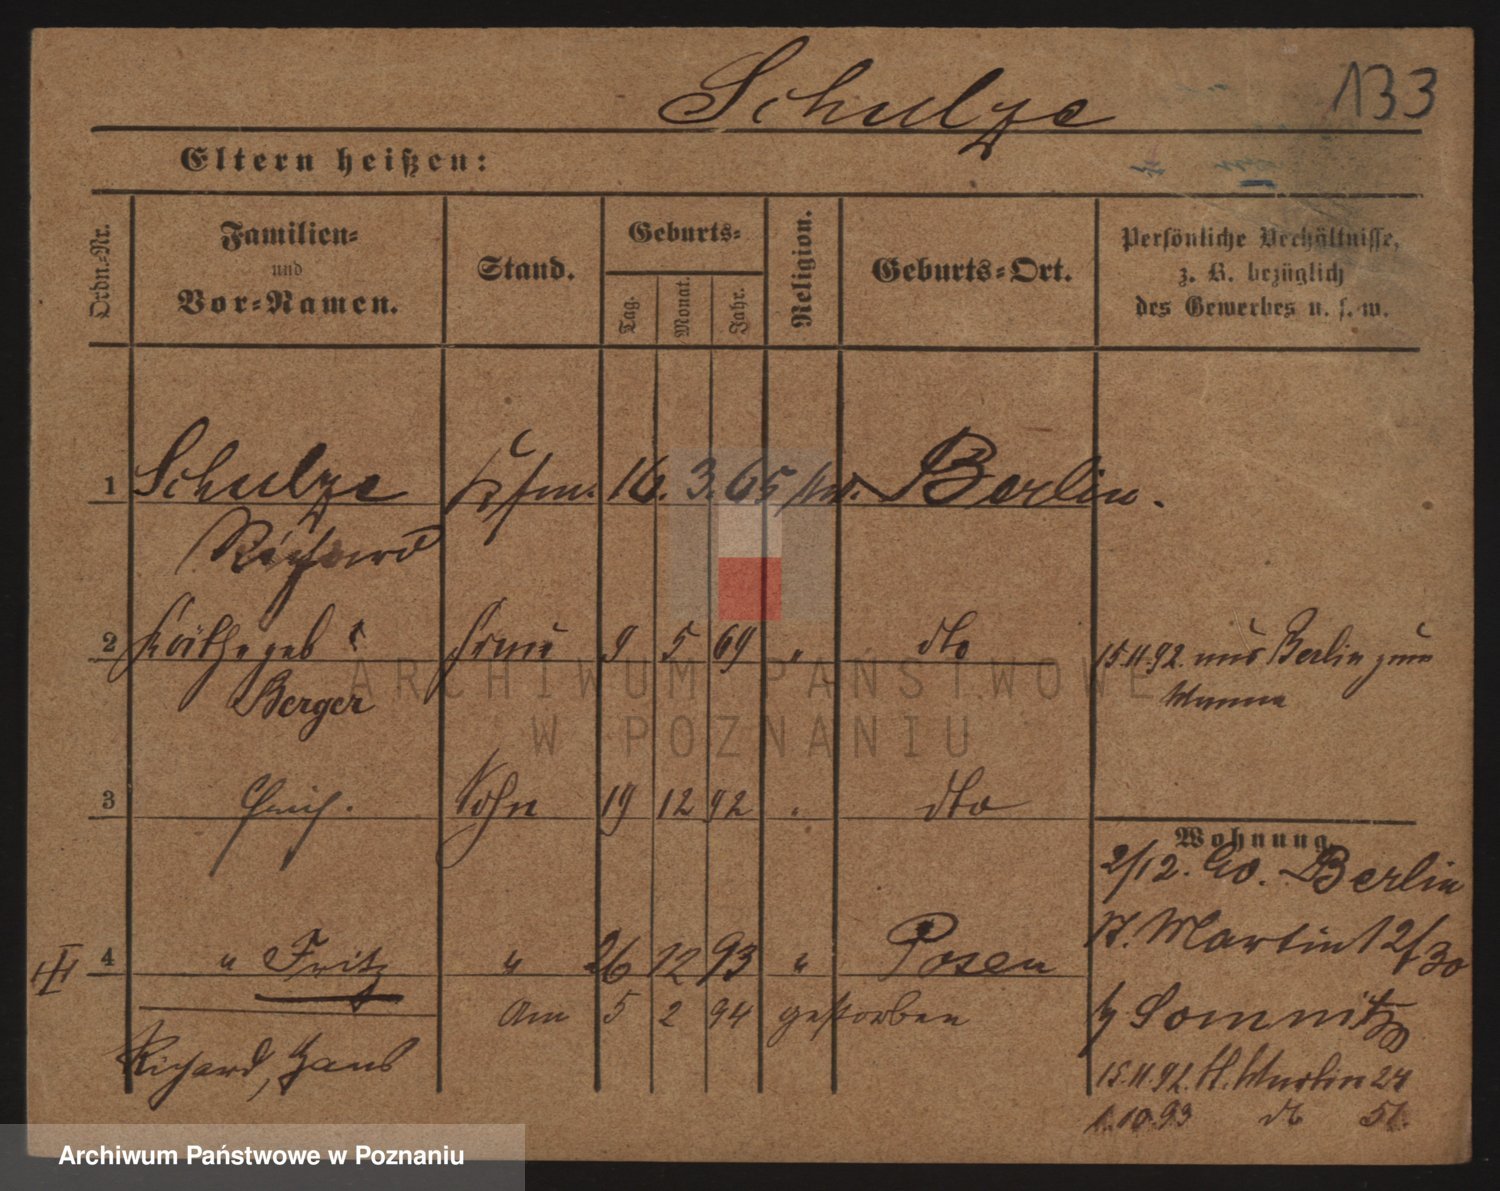 Schulze 133
Eltern heißen:
Ordn.-Nr.
Familien-
und
Vor-Namen.
Stand.
Geburts-
Tag.
Monat.
Jahr.
Religion.
Geburts-Ort.
Persönliche Verhältnisse,
z. B. bezüglich
des Gewerbes u. s. w.
1 Schulze Kfm. 16. 3. 65 Berlin.
Richard
2 Käthe geb Frau 9 5 69 " dto 15.11.92. aus Berlin zum
Berger Manne
ARCHIWUM PAŃSTWOWE
W POZNANIU
3 Sohn 19 12 92 " dto
Wohnung
2/12. Berlin
St. Martin 12/30
4 " Fritz " 26 12 93 " Posen
Am 5 2 94 gestorben
b/ Somnitz
Richard, Hans
15.11.92. St. Martin 24
1.10.93 do 51.
Archiwum Państwowe w Poznaniu